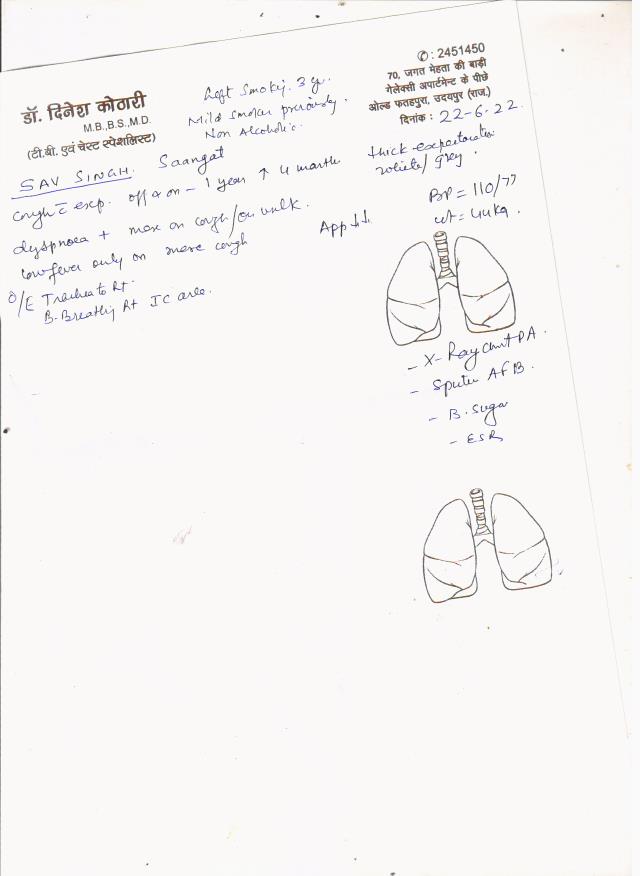 ✆: 2451450
70, जगत मेहता की बाड़ी
गेलेक्सी अपार्टमेन्ट के पीछे
ओल्ड फतहपुरा, उदयपुर (राज.)
दिनांक : 22-6-22
डॉ. दिनेश कोठारी
M.B.,B.S.,M.D.
(टी.बी. एवं चेस्ट स्पेशलिस्ट)
Left Smoking. 3 yr.
Mild Smoker previously.
Non Alcoholic.
SAV SINGH. Saangat
Cough c̄ exp. off & on – 1 year ↑ 4 month
thick expectoration
white/grey.
dyspnoea + more on cough/on walk.
low fever only on more cough
App ↓↓
BP = 110/77
wt = 44kg.
O/E Trachea to Rt.
B. Breathing Rt IC area.
- X-Ray Chest PA.
- Sputum AFB.
- B. Sugar
- ESR